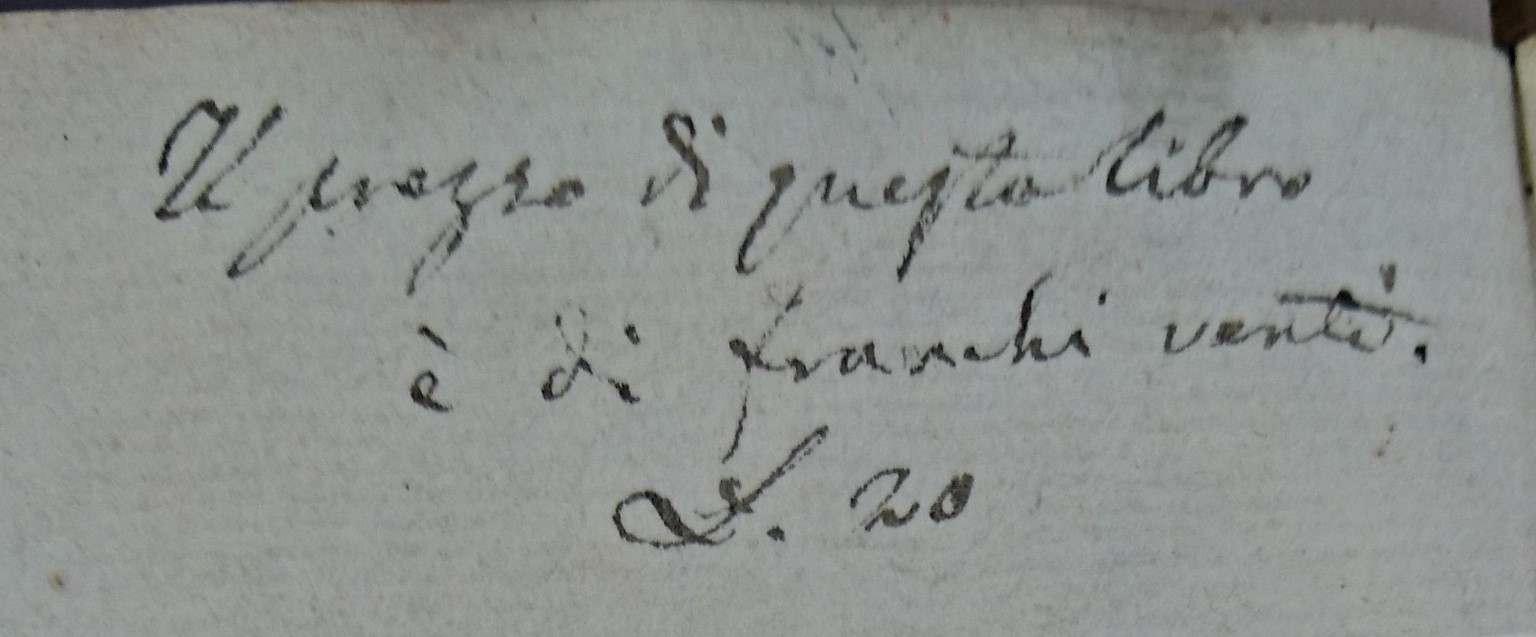 Il prezzo di questo libro
è di franchi venti.
L. 20